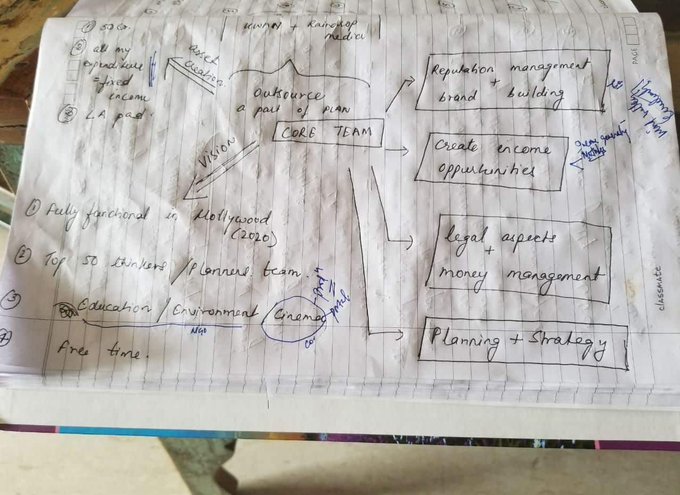 ① 50 Cr.
② all my
expenditure
= fixed
income
③ LA pad.
asset
creation
KWAN + Raindrop
media
Outsource
a part of PLAN
CORE TEAM
VISION
Reputation management
+
brand building
Create encome
oppurtunities
legal aspects
+
money management
Planning + Strategy
① Fully functional in Hollywood
(2020)
② Top 50 thinkers / Planners team.
③ Education / Environment Cinema
NGO
free time.
PAGE
classmate